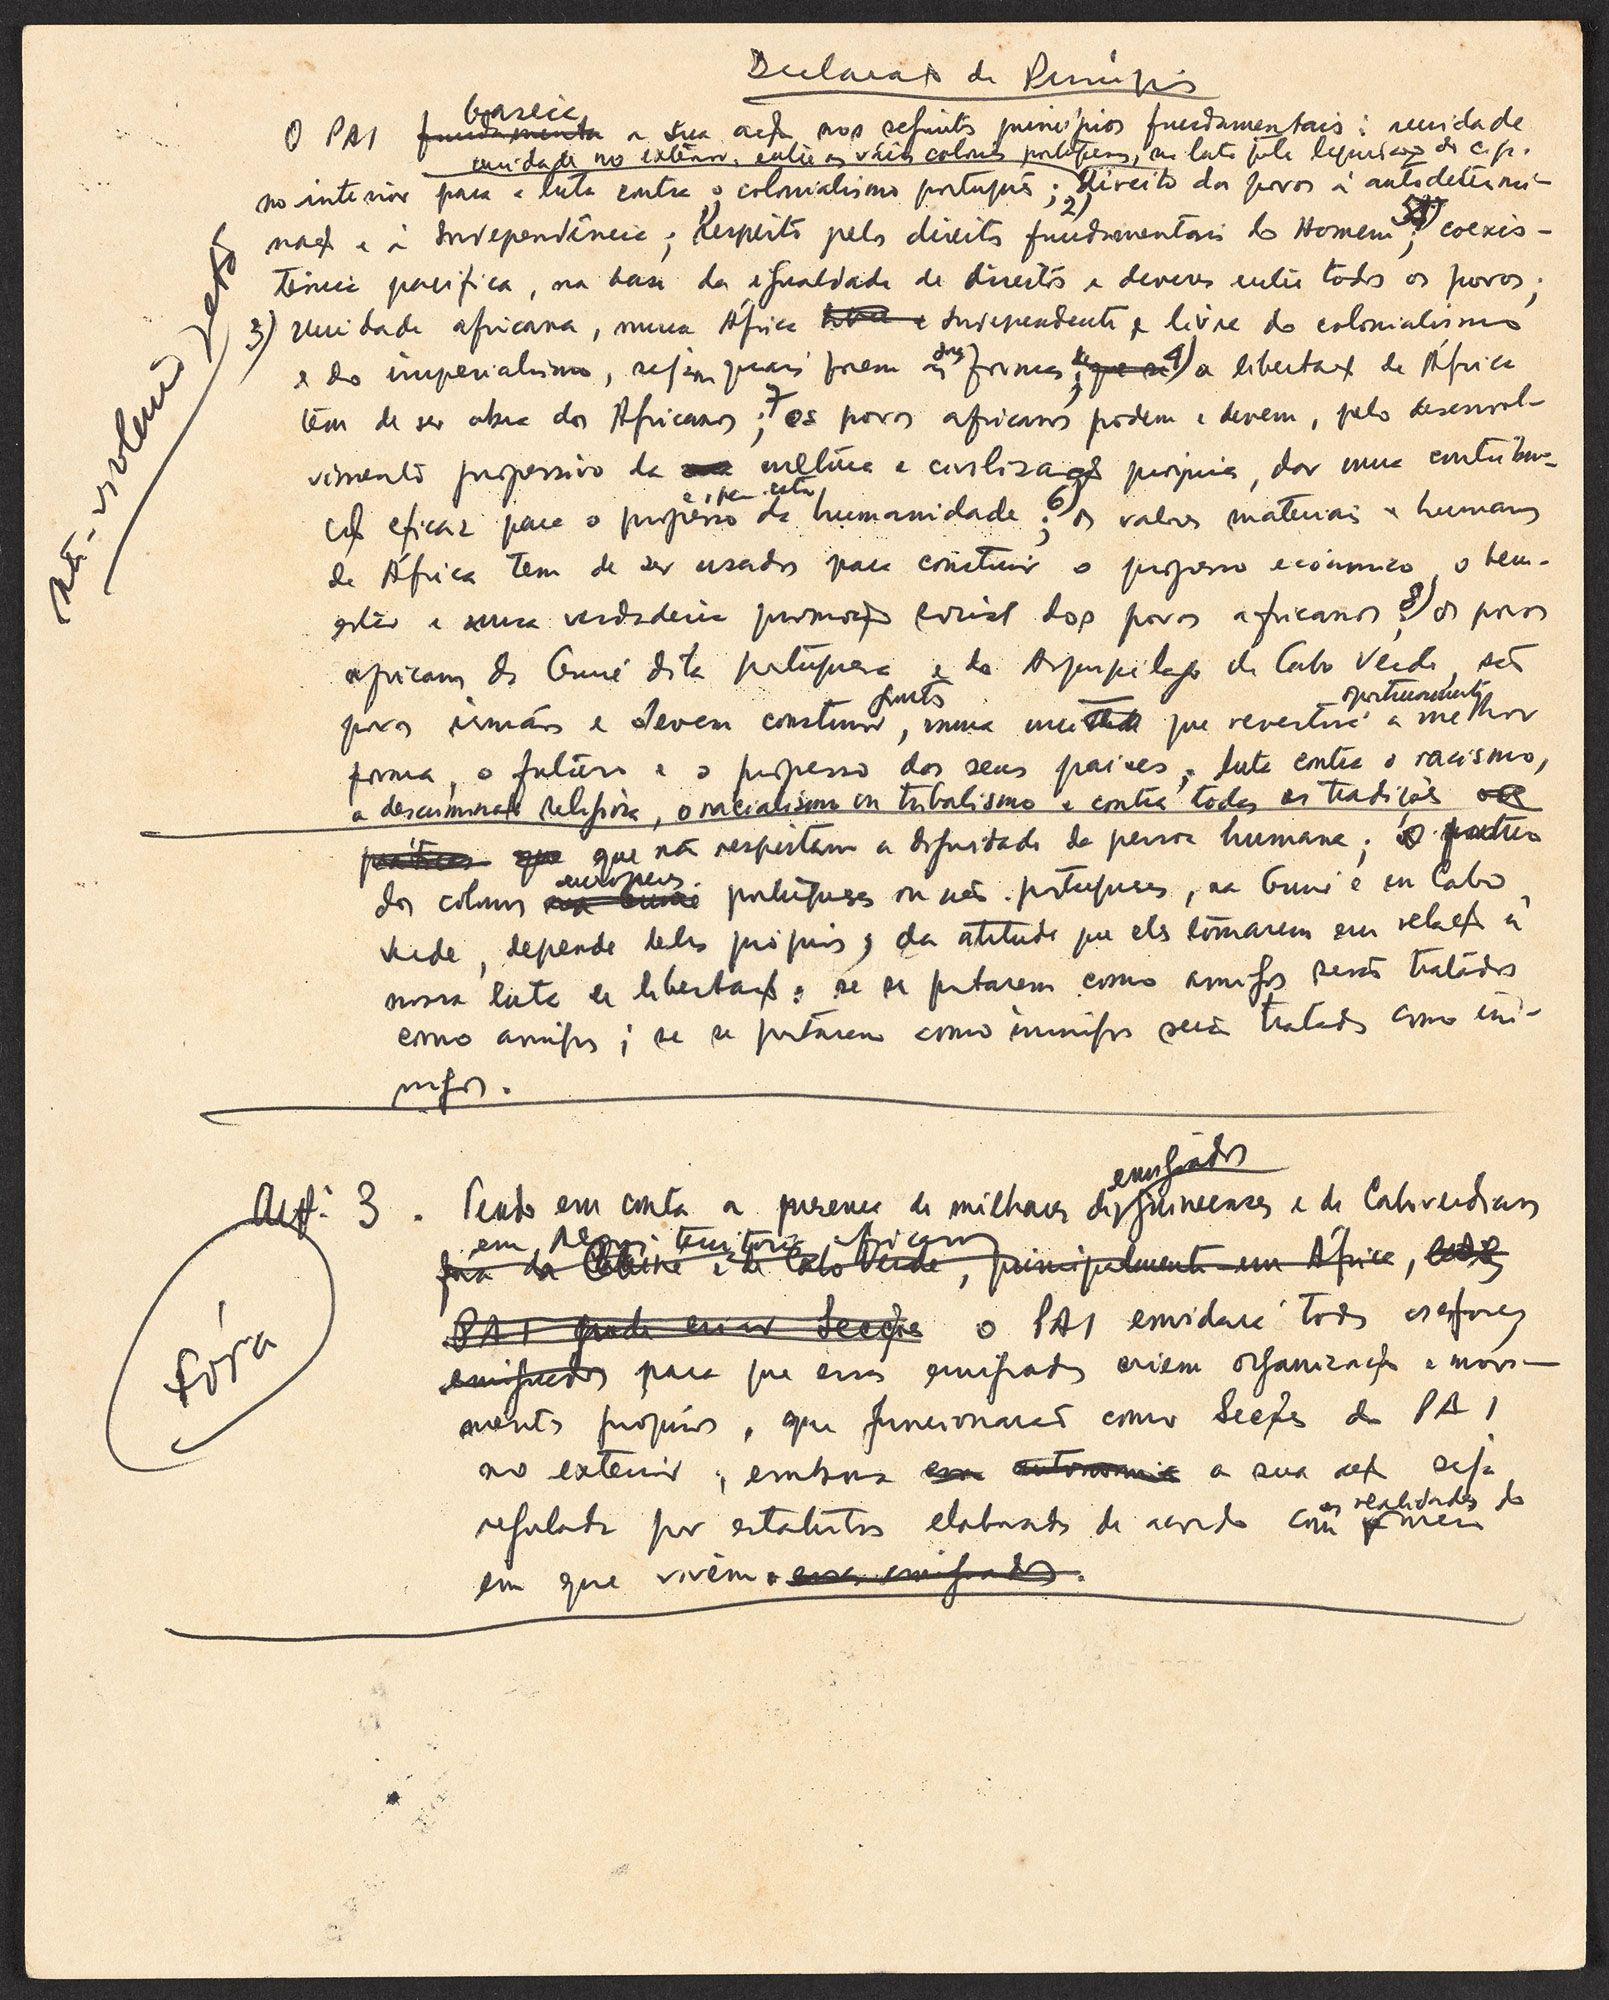 Declaração de Princípios
baseia
O PAI fundamenta a sua acção nos seguintes princípios fundamentais: unidade
unidade no exterior, entre as várias colonias portuguesas, na luta pela liquidação do c. p.
no interior para a luta contra o colonialismo português; direito dos povos à autodetermi-
nação e à Independência; 2) Respeito pelos direitos fundamentais do Homem; 5) coexis-
tência pacífica, na base da igualdade de direitos e deveres entre todos os povos;
3) unidade africana, numa África livre e Independente e livre do colonialismo
e do imperialismo, sejam quais forem as suas formas; que se 4) a libertação de África
tem de ser obra dos Africanos; 7 os povos africanos podem e devem, pelo desenvol-
vimento progressivo da sua cultura e civilização própria, dar uma contribui-
ção eficaz para o progresso da humanidade; 6) os valores materiais e humanos
de África tem de ser usados para construir o progresso económico, o bem-
estar e uma verdadeira promoção social dos povos africanos; 8) os povos
africanos da Guiné dita portuguesa e do Arquipélago de Cabo Verde são
juntos
oportunamente
povos irmãos e devem construir, numa unidade que revestirá a melhor
forma, o futuro e o progresso dos seus países; luta contra o racismo,
a descriminação religiosa, o racialismo ou tribalismo e contra todas as tradições ou
práticas que que não respeitam a dignidade da pessoa humana; o futuro
europeus
dos colonos na Guiné portugueses ou não-portugueses, na Guiné e em Cabo
Verde, depende deles próprios, da atitude que eles tomarem em relação à
nossa luta de libertação: se se portarem como amigos serão tratados
como amigos; se se portarem como inimigos serão tratados como ini-
migos.
não-violencia
emigrados
Artº 3. Tendo em conta a presença de milhares de guineenses e de Caboverdianos
em territórios africanos
fora da Guiné e de Cabo Verde, principalmente em África,
PAI pode criar Secções o PAI envidará todos os esforços
emigrados para que esses emigrados criem organizações e movi-
mentos próprios, que funcionarão como Secções do PAI
no exterior, embora com autonomia a sua acção seja
as realidades do
regulada por estatutos elaborados de acordo com o meio
em que vivem. esses emigrados.
Fóra